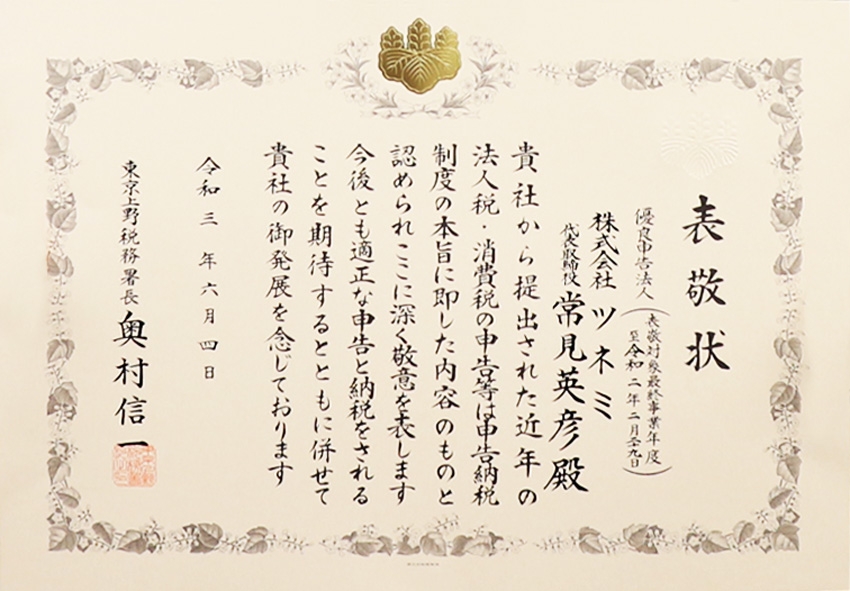 表敬状
優良申告法人
（表敬対象最終事業年度
至令和二年二月二十九日）
株式会社 ツネミ
代表取締役 常見英彦 殿
貴社から提出された近年の
法人税・消費税の申告等は申告納税
制度の本旨に即した内容のものと
認められここに深く敬意を表します
今後とも適正な申告と納税をされる
ことを期待するとともに併せて
貴社の御発展を念じております
令和三年六月四日
東京上野税務署長 奥村信一